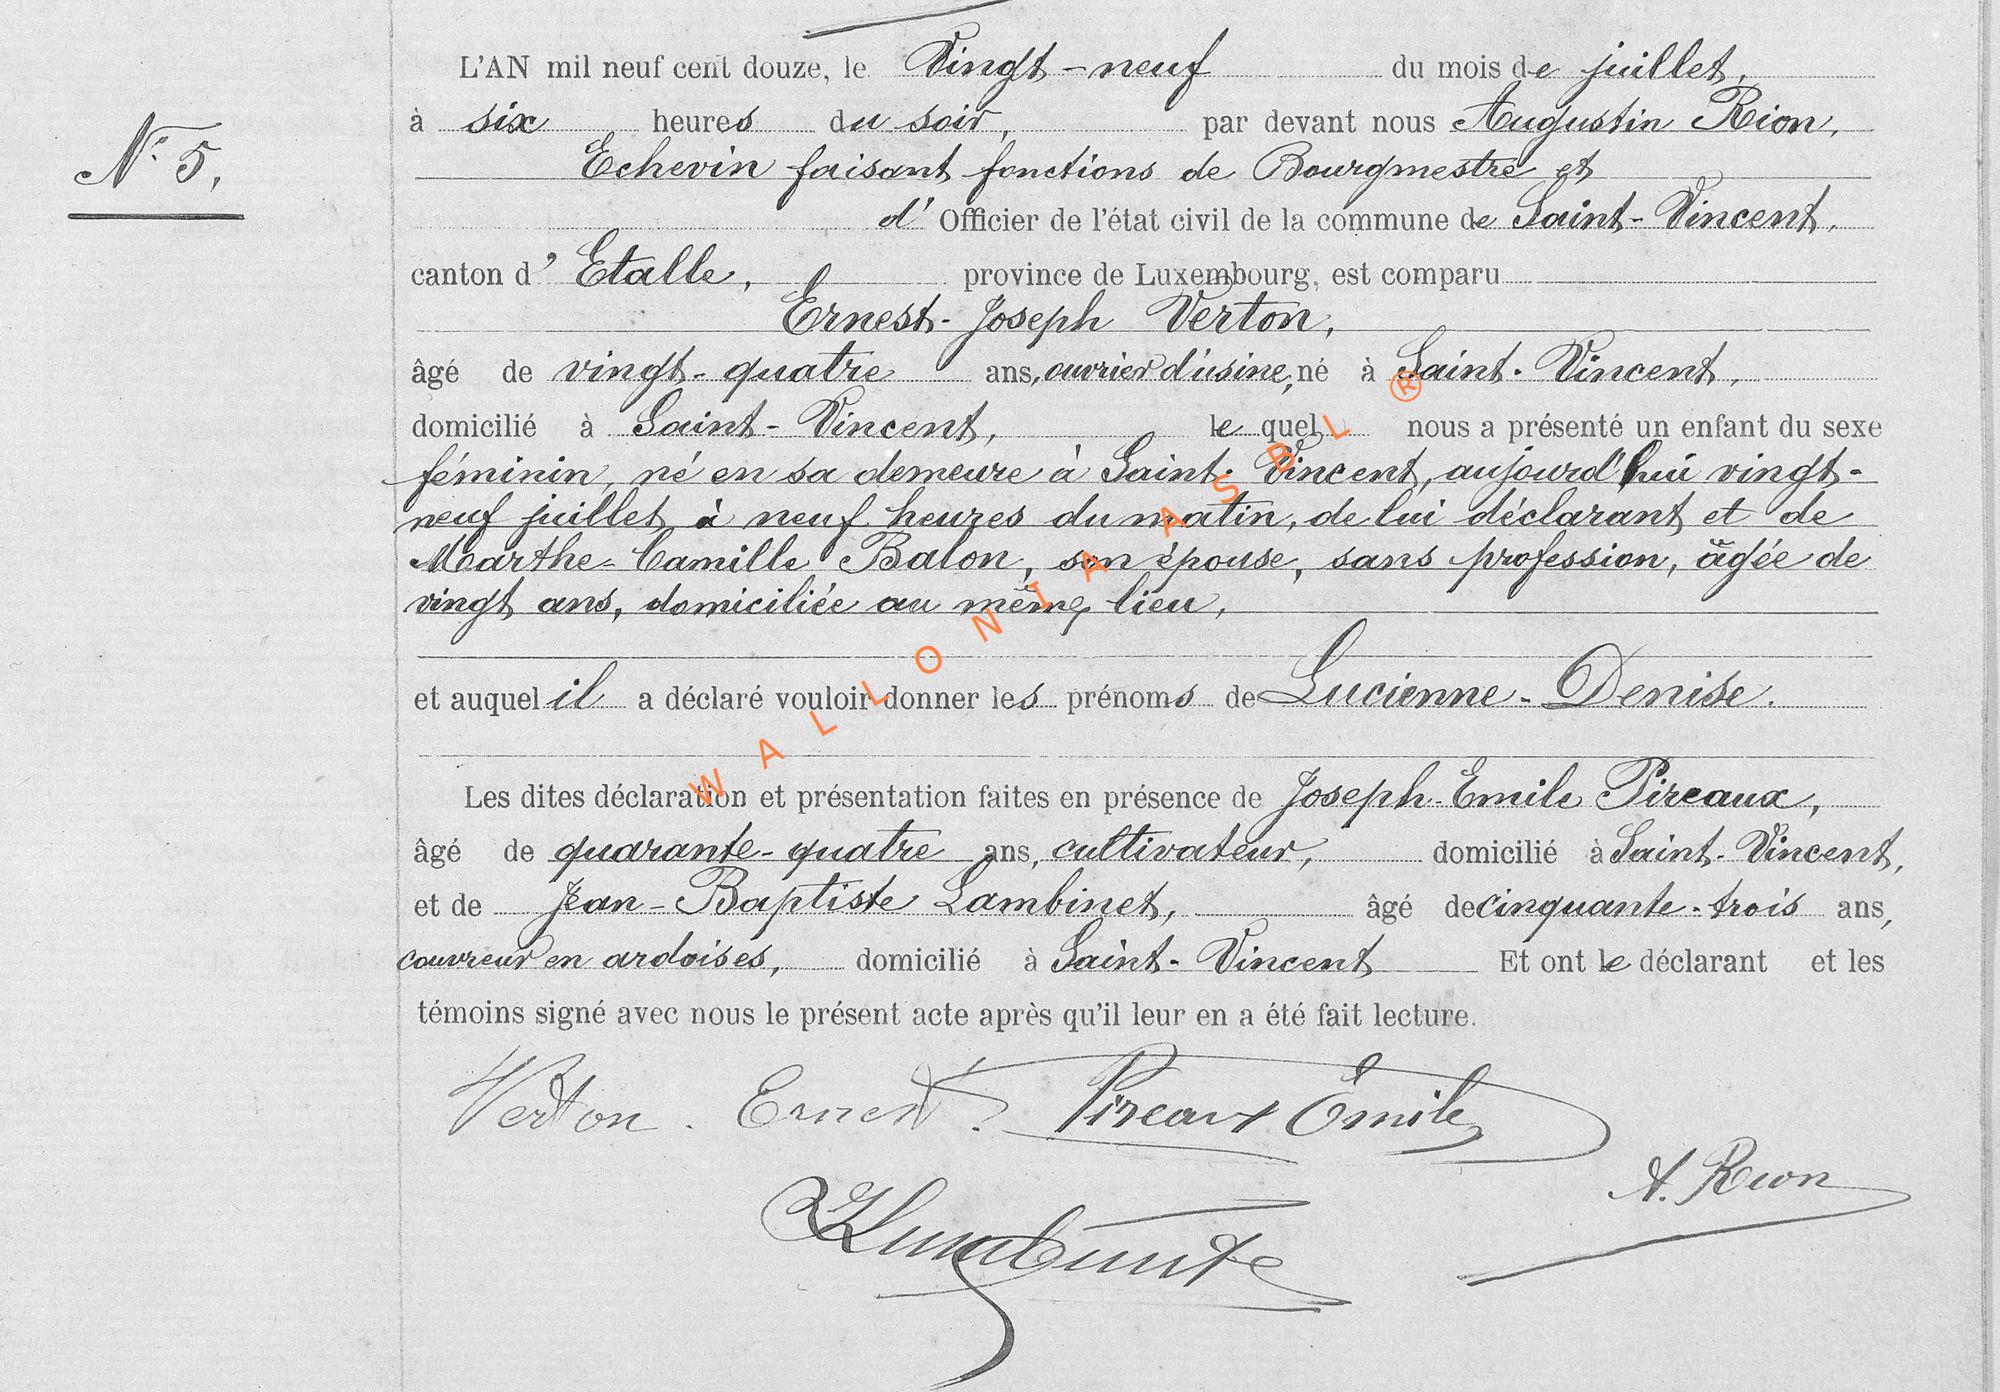 N° 5,
L'AN mil neuf cent douze, le Vingt-neuf du mois de juillet,
à six heures du soir, par devant nous Augustin Rion,
Echevin faisant fonctions de Bourgmestre et
d' Officier de l'état civil de la commune de Saint-Vincent,
canton d' Etalle, province de Luxembourg, est comparu
Ernest-Joseph Verton,
âgé de vingt-quatre ans, ouvrier d'usine, né à Saint-Vincent,
domicilié à Saint-Vincent, le quel nous a présenté un enfant du sexe
féminin, né en sa demeure à Saint-Vincent, aujourd'hui vingt-
neuf juillet à neuf heures du matin, de lui déclarant et de
Marthe-Camille Balon, son épouse, sans profession, âgée de
vingt ans, domiciliée au même lieu,
et auquel il a déclaré vouloir donner les prénoms de Lucienne-Denise.
Les dites déclaration et présentation faites en présence de Joseph-Emile Pireaux,
âgé de quarante-quatre ans, cultivateur, domicilié à Saint-Vincent,
et de Jean-Baptiste Lambinet, âgé de cinquante-trois ans,
couvreur en ardoises, domicilié à Saint-Vincent Et ont le déclarant et les
témoins signé avec nous le présent acte après qu'il leur en a été fait lecture.
Verton. Ernest. Pireaux Emile
A. Rion
WALLONIA ASBL ®